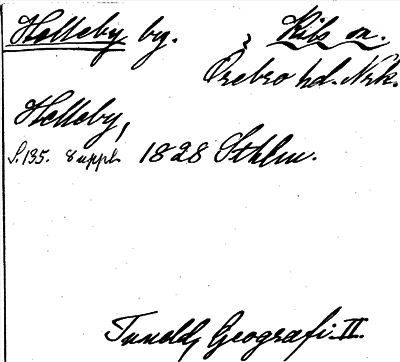 Helleby by. Kils sn.
Örebro hd. Nrk.
Helleby,
S. 135. 8 uppl. 1828 Sthlm.
Tuneld, Geografi II.